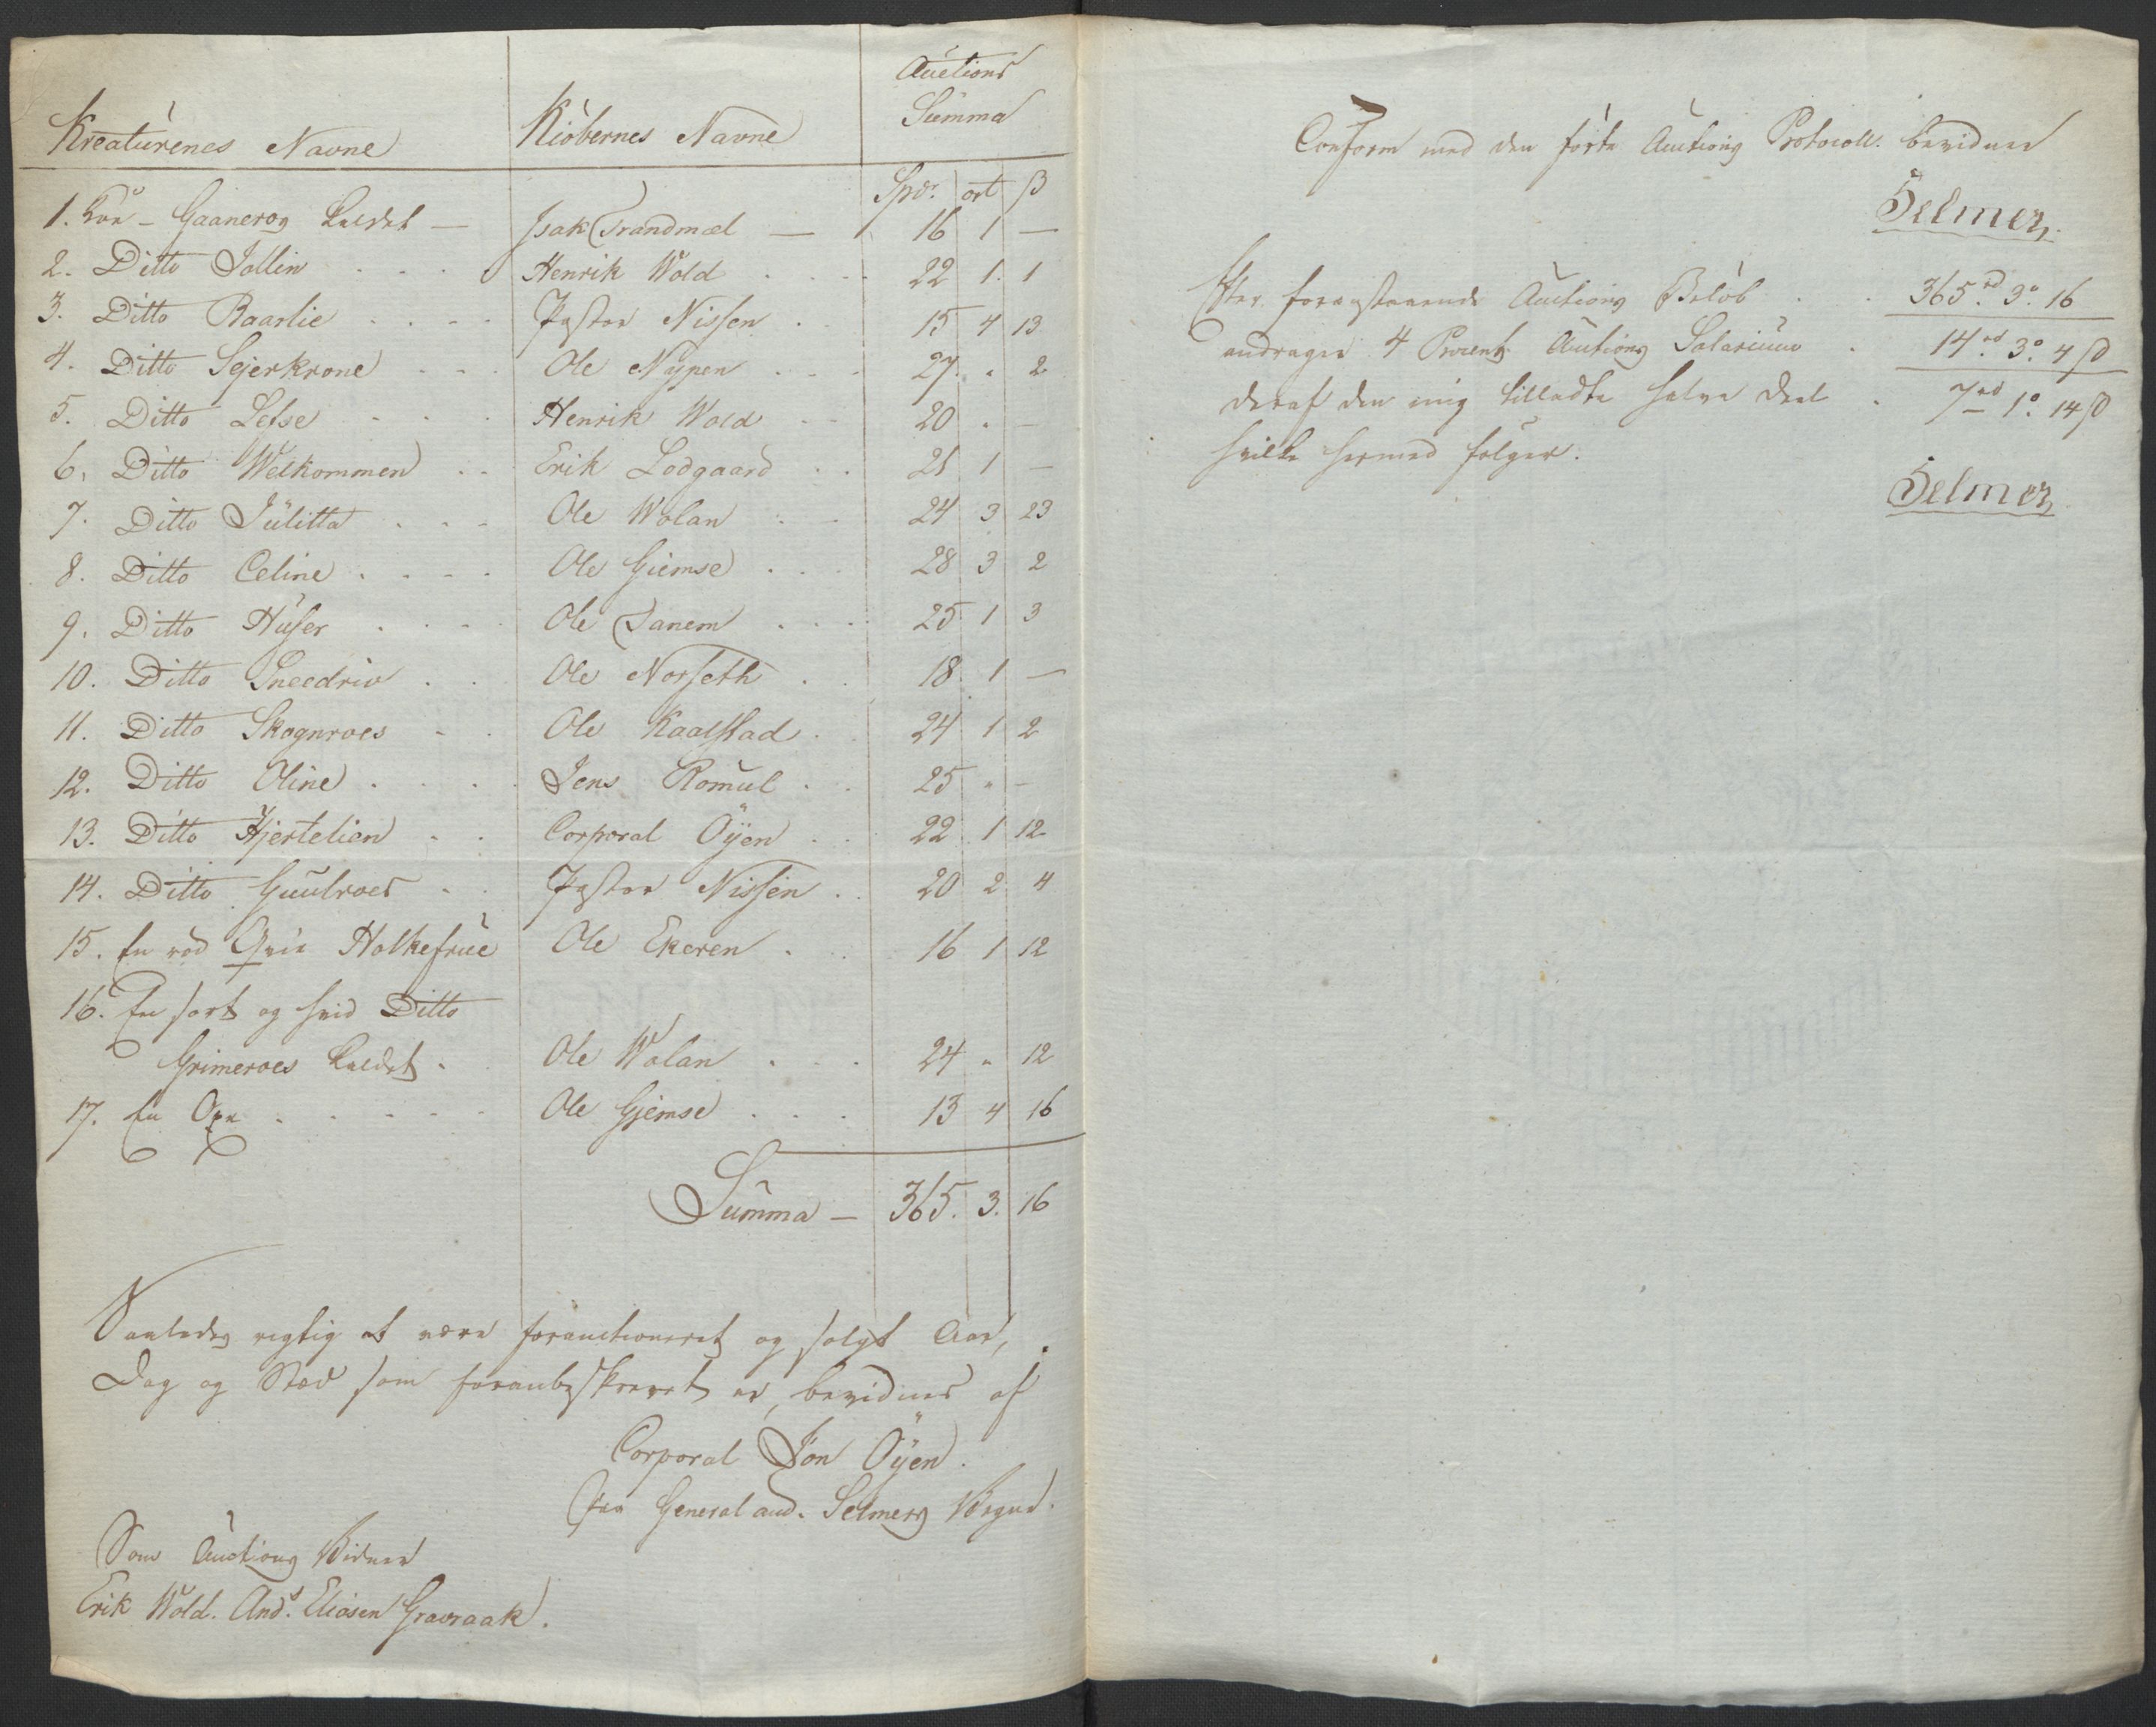 Kreaturenes Navne | Kiöbernes Navne | Auctions Summa
Spdr. | ort | β
1. Koe - Gaaneroes kaldet — | Isak Trandmæl — | 16 | 1 | —
2. Ditto Jollin | Henrik Wold | 22 | 1. | 1
3. Ditto Raarlie | Pastor Nissen | 15 | 4 | 13
4. Ditto Sejerkrone | Ole Nypen | 27. | " | 2
5. Ditto Lefse | Henrik Wold | 20 | " | —
6. Ditto Welkommen | Erik Lodgaard | 21 | 1 | —
7. Ditto Julitta | Ole Wolan | 24 | 3 | 23
8. Ditto Celine | Ole Giemse | 28 | 3 | 2
9. Ditto Huser | Ole Tanem | 25 | 1 | 3
10. Ditto Sneedriv | Ole Norseth | 18 | 1 | —
11. Ditto Skognroes | Ole Kaalstad | 24 | 1 | 2
12. Ditto Oline | Jens Romul | 25 | " | -
13. Ditto Hjertelien | Corporal Öyen | 22 | 1 | 12
14. Ditto Guulroes | Pastor Nissen | 20 | 2 | 4
15. En röd Qvie Holkefrue | Ole Ekeren | 16 | 1 | 12
16. En sort og hvid Ditto
Grimeroes kaldet. | Ole Wolan | 24 | " | 12
17. En Oxe | Ole Gjemse | 13 | 4 | 16
Summa — 365. 3. 16
Saaledes rigtig at være forauctioneret og solgt Aar,
Dag og Sted som foranbeskrevet er, bevidnes af
Corporal Jon Öyen.
paa General aud. Selmers Vegne.
Som Auctions Vidner
Erik Wold. And.s Eliasen Gravraak.
Conform med den förte Auctions Protocoll. bevidner
Selmer.
Efter foranstaaende Auctions Belöb . . 365rd 3o 16
andrager 4 Procent Auctions Salarium . 14rd 3o 4 β
deraf den mig tilladte halve Deel . 7rd 1o 14 β
hvilke hermed fölger.
Selmer